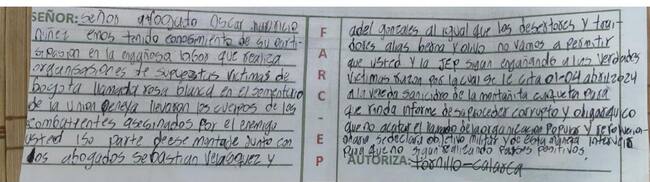 SEÑOR: Señor afogado Oscar mauricio
nuñez emos tenido conosimiento de su parti-
sipasion en la engañosa labor que realiza
organisasiones de supuestas victimas de
bogota llamada rosa blanca en el sementerio
de la union peneya llevaron los cuerpos de los
combatientes asesinados por el enemigo
usted iso parte de ese montaje junto con
los abogados sebastian velasquez y
FARC-EP
adel gonzales al igual que los desertores y trai-
dores alas berna y olivo no vamos a permitir
que usted y la JEP sigan engañando a las verdades
victimas razon por la cual se le cita 01-04 abril 2024
a la vereda san isidro de la montañita caqueta para
que rinda informe de su proceder corrupto y oligarquico
que no acatar el llamado de la organisacion popular y revolucion-
onario se declara objetivo militar y de esta manera intervenir
para que no sigan realizando falsos positivos.
AUTORIZA: Tornillo-calarca